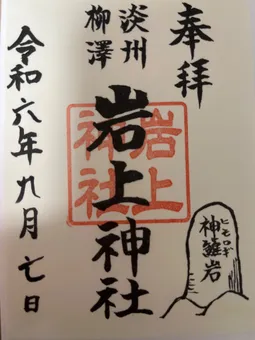 奉拝
ヒモロギ
神籬岩
淡州
柳澤
岩上神社
岩上
神社
令和六年九月七日